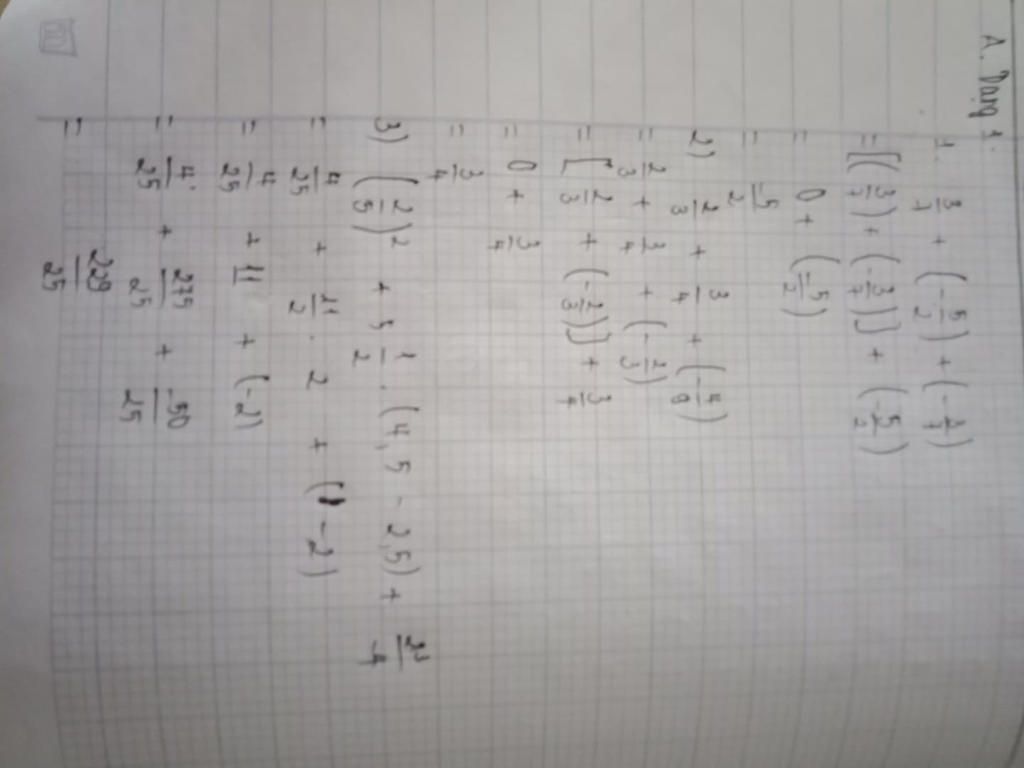 A. Dạng 1:
1. 3/7 + (-5/2) + (-3/7)
= [(3/7) + (-3/7)] + (-5/2)
= 0 + (-5/2)
= -5/2
2) 2/3 + 3/4 + (-4/9)
= 2/3 + 3/4 + (-2/3)
= [2/3 + (-2/3)] + 3/4
= 0 + 3/4
= 3/4
3) (2/5)² + 5 1/2 . (4,5 - 2,5) +
= 4/25 + 11/2 . 2 + (-2)
= 4/25 + 11 + (-2)
= 4/25 + 275/25 + -50/25
= 229/25